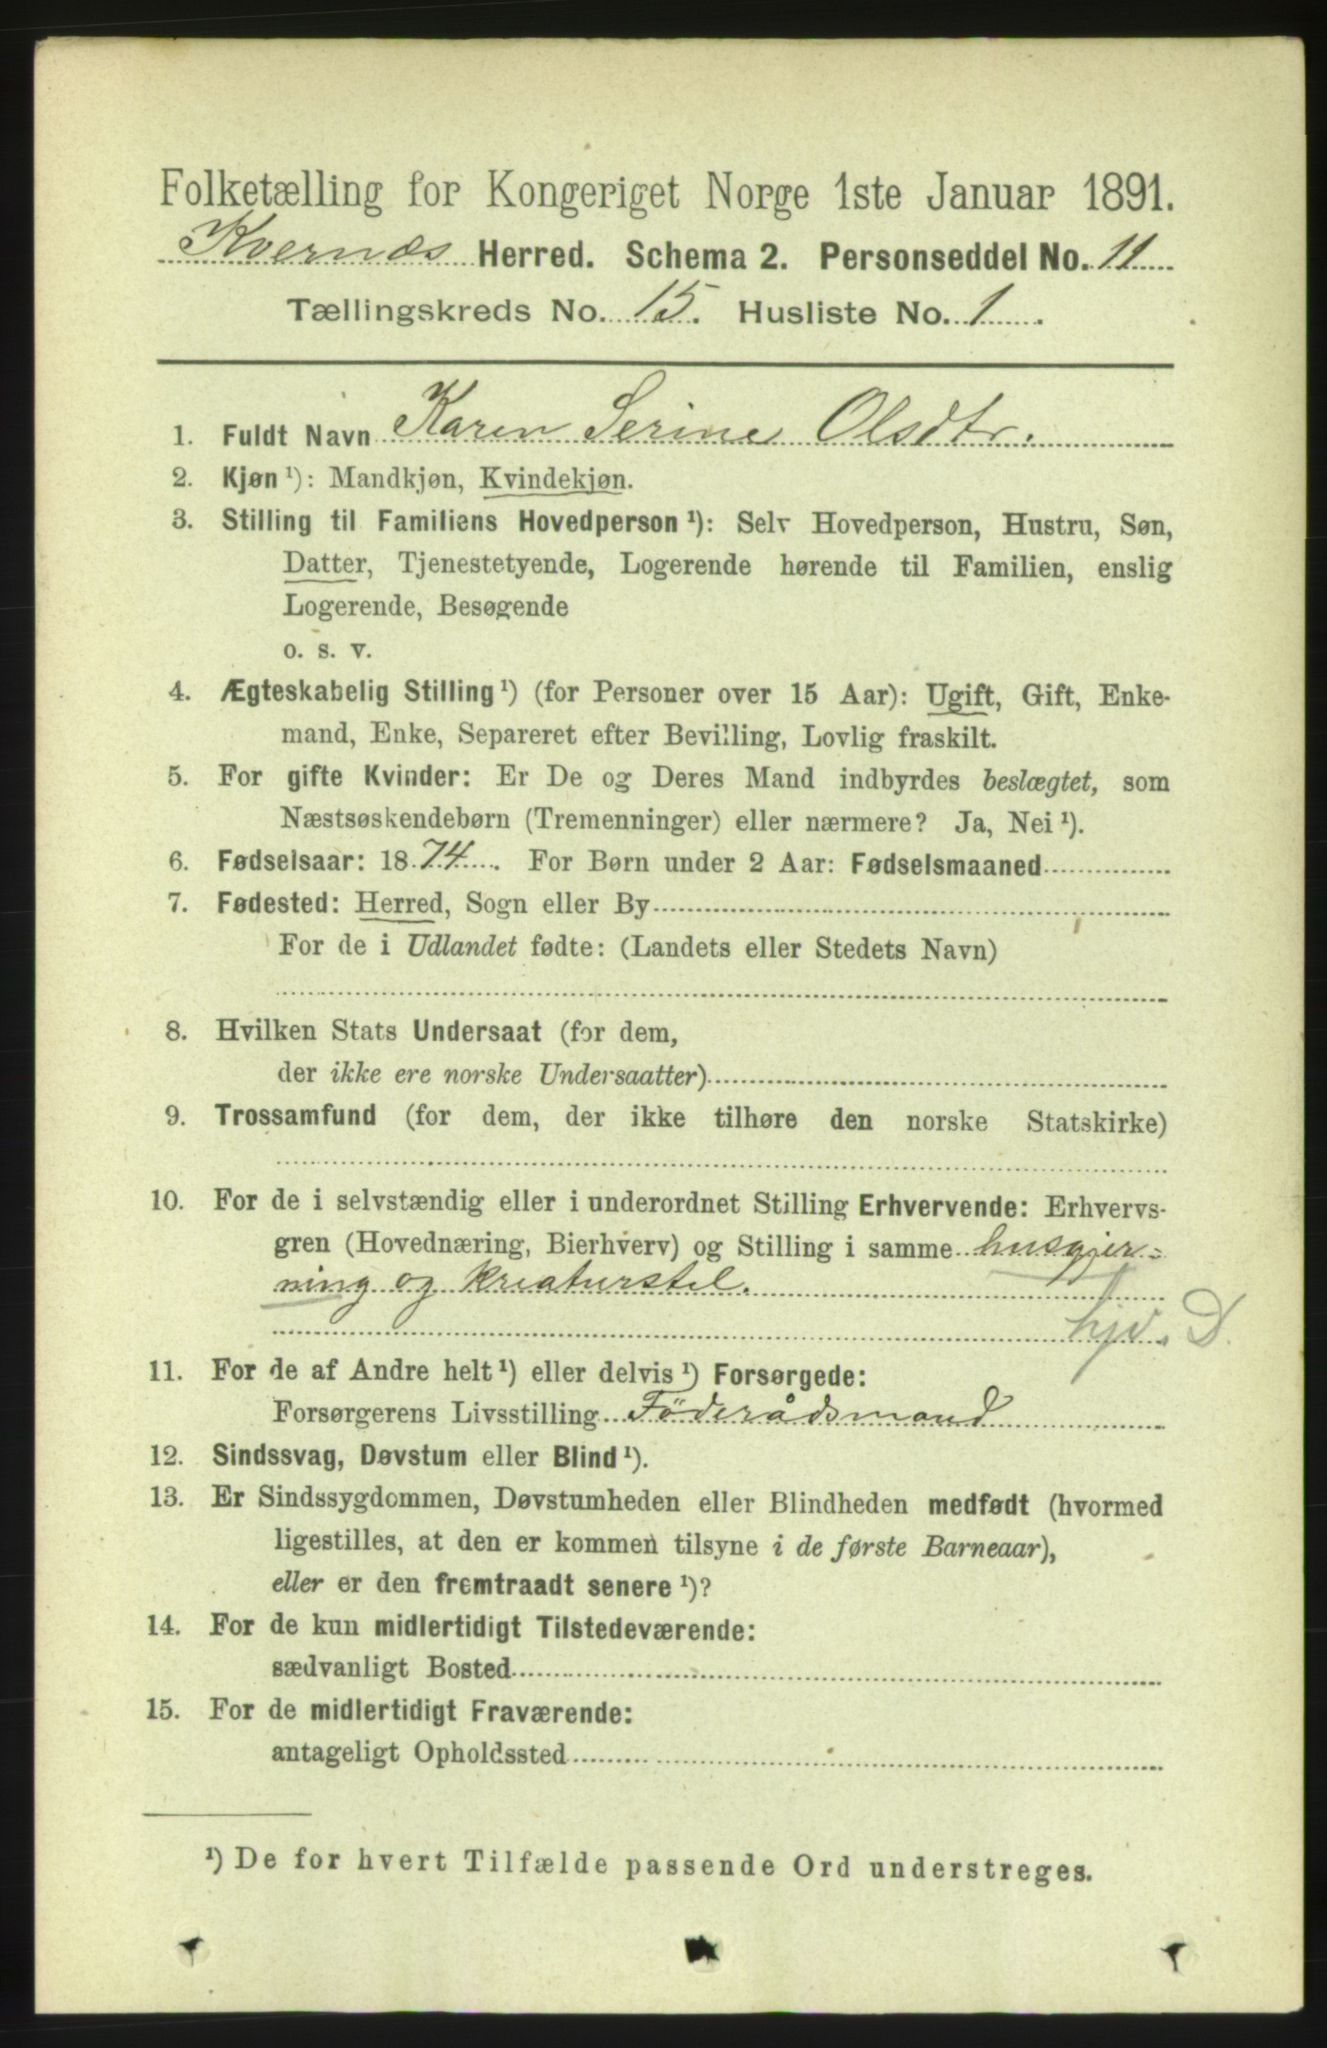 Folketælling for Kongeriget Norge 1ste Januar 1891.
Kvernæs Herred. Schema 2. Personseddel No. 11
Tællingskreds No. 15. Husliste No. 1.
1. Fuldt Navn Karen Serine Olsdtr.
2. Kjøn ¹): Mandkjøn, Kvindekjøn.
3. Stilling til Familiens Hovedperson ¹): Selv Hovedperson, Hustru, Søn,
Datter, Tjenestetyende, Logerende hørende til Familien, enslig
Logerende, Besøgende
o. s. v.
4. Ægteskabelig Stilling ¹) (for Personer over 15 Aar): Ugift, Gift, Enke-
mand, Enke, Separeret efter Bevilling, Lovlig fraskilt.
5. For gifte Kvinder: Er De og Deres Mand indbyrdes beslægtet, som
Næstsøskendebørn (Tremenninger) eller nærmere? Ja, Nei ¹).
6. Fødselsaar: 1874. For Børn under 2 Aar: Fødselsmaaned
7. Fødested: Herred, Sogn eller By
For de i Udlandet fødte: (Landets eller Stedets Navn)
8. Hvilken Stats Undersaat (for dem,
der ikke ere norske Undersaatter)
9. Trossamfund (for dem, der ikke tilhøre den norske Statskirke)
10. For de i selvstændig eller i underordnet Stilling Erhvervende: Erhvervs-
gren (Hovednæring, Bierhverv) og Stilling i samme husgjer=
ning og kreaturstel.
hjv. D.
11. For de af Andre helt ¹) eller delvis ¹) Forsørgede:
Forsørgerens Livsstilling Föderådsmand
12. Sindssvag, Døvstum eller Blind ¹).
13. Er Sindssygdommen, Døvstumheden eller Blindheden medfødt (hvormed
ligestilles, at den er kommen tilsyne i de første Barneaar),
eller er den fremtraadt senere ¹)?
14. For de kun midlertidigt Tilstedeværende:
sædvanligt Bosted
15. For de midlertidigt Fraværende:
antageligt Opholdssted
¹) De for hvert Tilfælde passende Ord understreges.